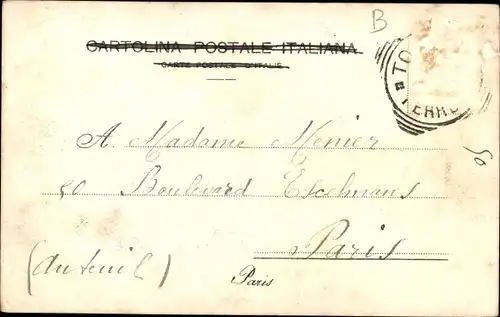 B
CARTOLINA POSTALE ITALIANA
CARTE POSTALE D'ITALIE
TO
FERRO
A Madame Menier
50
80 Boulevard Excelmans
Paris
(Auteuil)
Paris